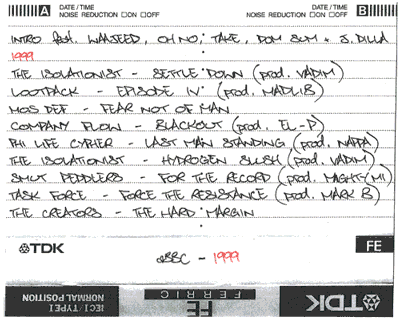 A DATE / TIME
NOISE REDUCTION □ON □OFF
DATE / TIME B
NOISE REDUCTION □ON □OFF
INTRO feat. WAAJEED, OH NO, TAKE, DOM SUM + J. DILLA
1999
THE ISOLATIONIST - SETTLE DOWN (prod. VADIM)
LOOTPACK - EPISODE IV (prod. MADLIB)
MOS DEF - FEAR NOT OF MAN
COMPANY FLOW - BLACKOUT (prod. EL-P)
PHI LIFE CYPHER - LAST MAN STANDING (prod. NAPPA)
THE ISOLATIONIST - HYDROGEN SLUSH (prod. VADIM)
SMUT PEDDLERS - FOR THE RECORD (prod. MIGHTY MI)
TASK FORCE - FORCE THE RESISTANCE (prod. MARK B)
THE CREATORS - THE HARD MARGIN
TDK FE
BBC - 1999
IEC I / TYPE I
NORMAL POSITION
FE
FERRIC
TDK